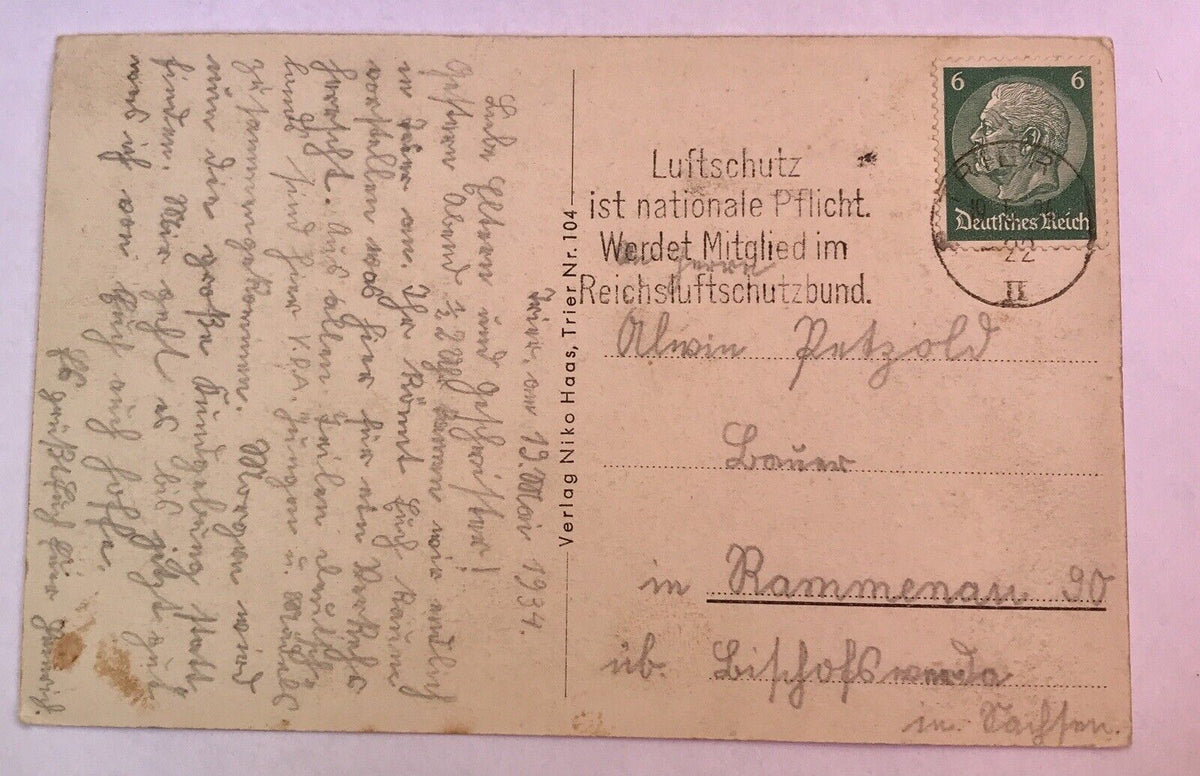 Trier, am 19. Mai 1934.
Liebe Eltern und Geschwister!
Gestern Abend ½ 2 Uhr kamen wir endlich
in Trier an. Ihr könnt Euch kaum
vorstellen was hier für ein Verkehr
herrscht. Aus allen Teilen Deutsch-
lands sind hier V.D.A. Jungen u. Mädels
zusammengekommen. Morgen wird
nun die große Kundgebung statt-
finden. Mir geht es bis jetzt gut
und ich von Euch auch hoffe.
Es grüßt Euch Euer
Verlag Niko Haas, Trier Nr. 104
Luftschutz
ist nationale Pflicht.
Werdet Mitglied im
Reichsluftschutzbund.
6 6
Deutsches Reich
22
II
Herrn
Alwin Petzold
Bauer
in Rammenau 90
üb. Bischofswerda
in Sachsen.